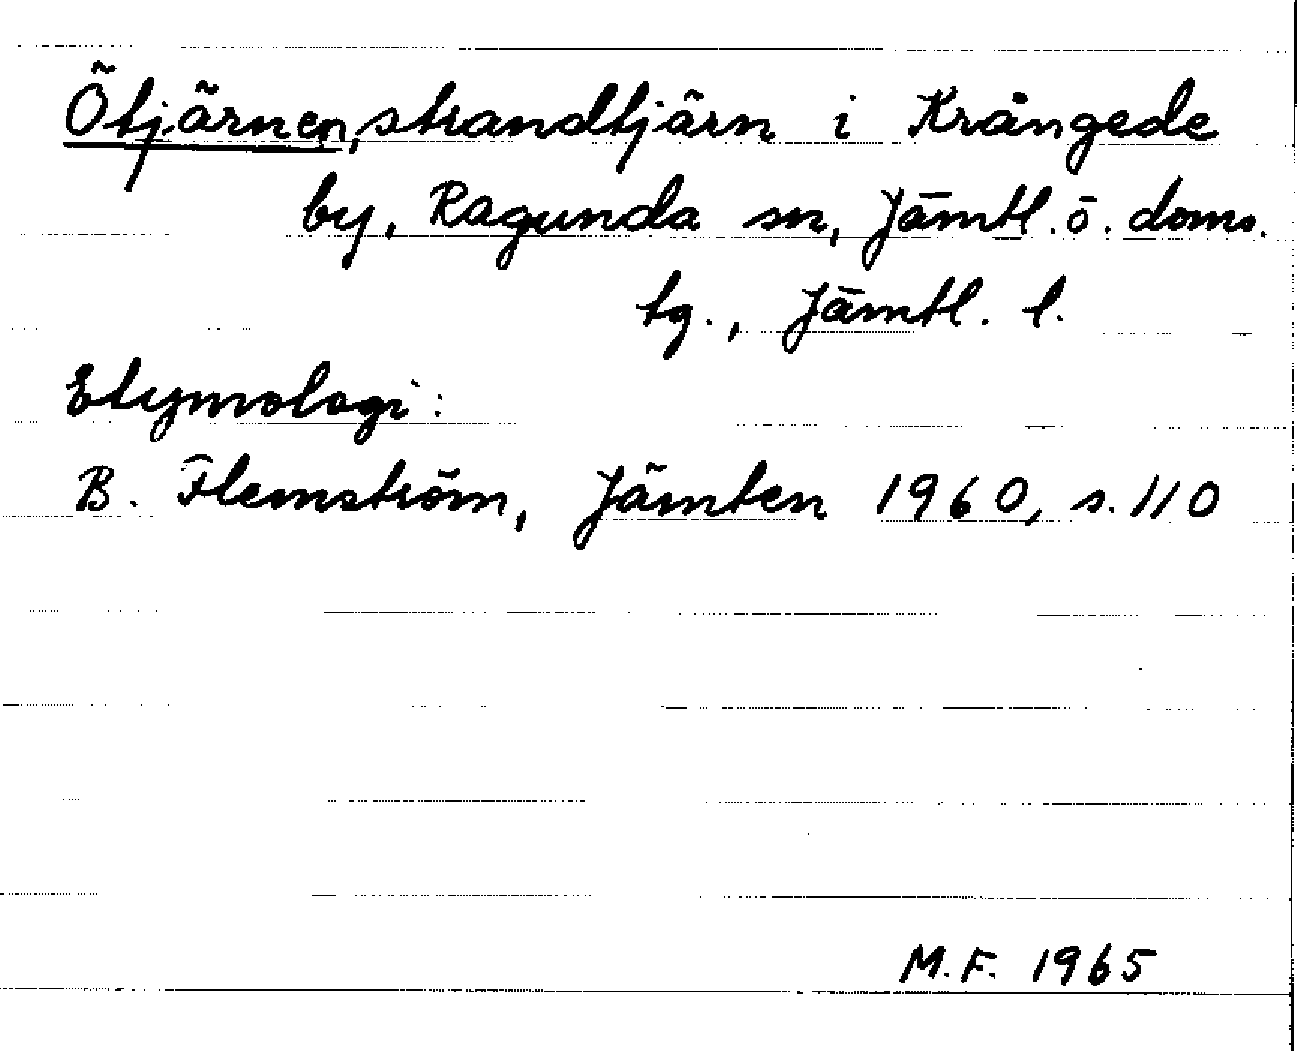 Ötjärnen, strandtjärn i Krångede
by, Ragunda sn, Jämtl. ö. doms.
tg., Jämtl. l.
Etymologi:
B. Flemström, Jämten 1960, s. 110
M.F. 1965